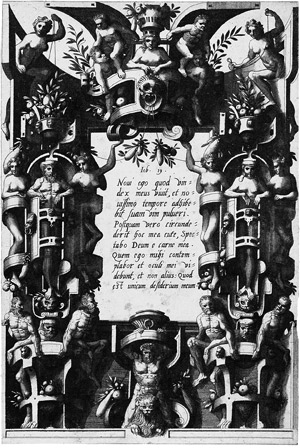 Iob. 19.
Novi ego quod vin=
dex meus vivit, et no=
vissimo tempore adstabit
Postquam vero circunde=
derit hoc mea cute, Spec=
tabo Deum e carne mea.
Quem ego mihi contem=
plabor et oculi mei vi=
debunt, et non alius: Quod
est unicum desiderium meum